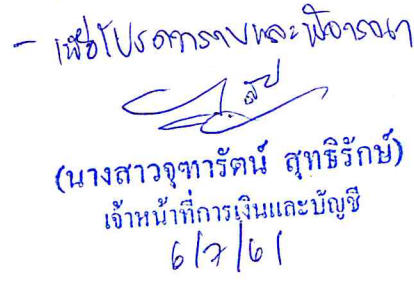 - เพื่อโปรดทราบและพิจารณา
(นางสาวจุฑารัตน์ สุทธิรักษ์)
เจ้าหน้าที่การเงินและบัญชี
6/7/61